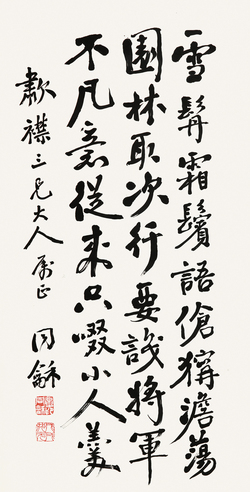 雪髥霜鬢語傖獰澹蕩
園林取次行要識將軍
不凡意從來只啜小人羹
歗襟三兄大人属正
同龢